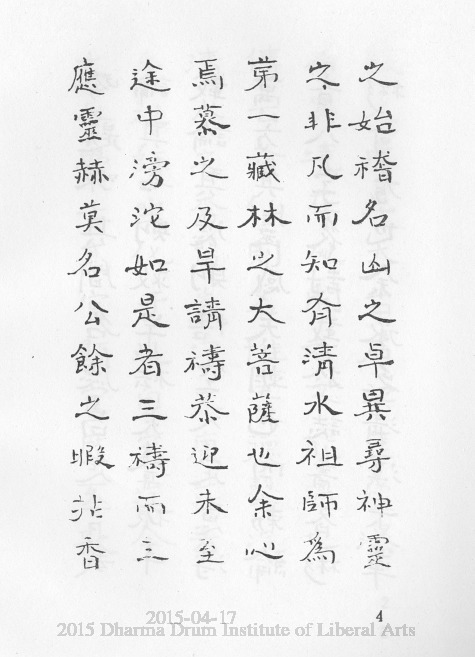 之始稽名山之卓異尋神靈
之非凡士而知有清水祖師為
第一藏林之大菩薩也余心
焉慕之及旱請禱恭迎未至
途中滂沱如是者三禱而三
應靈赫莫名公餘之暇拈香
4
2015-04-17
2015 Dharma Drum Institute of Liberal Arts